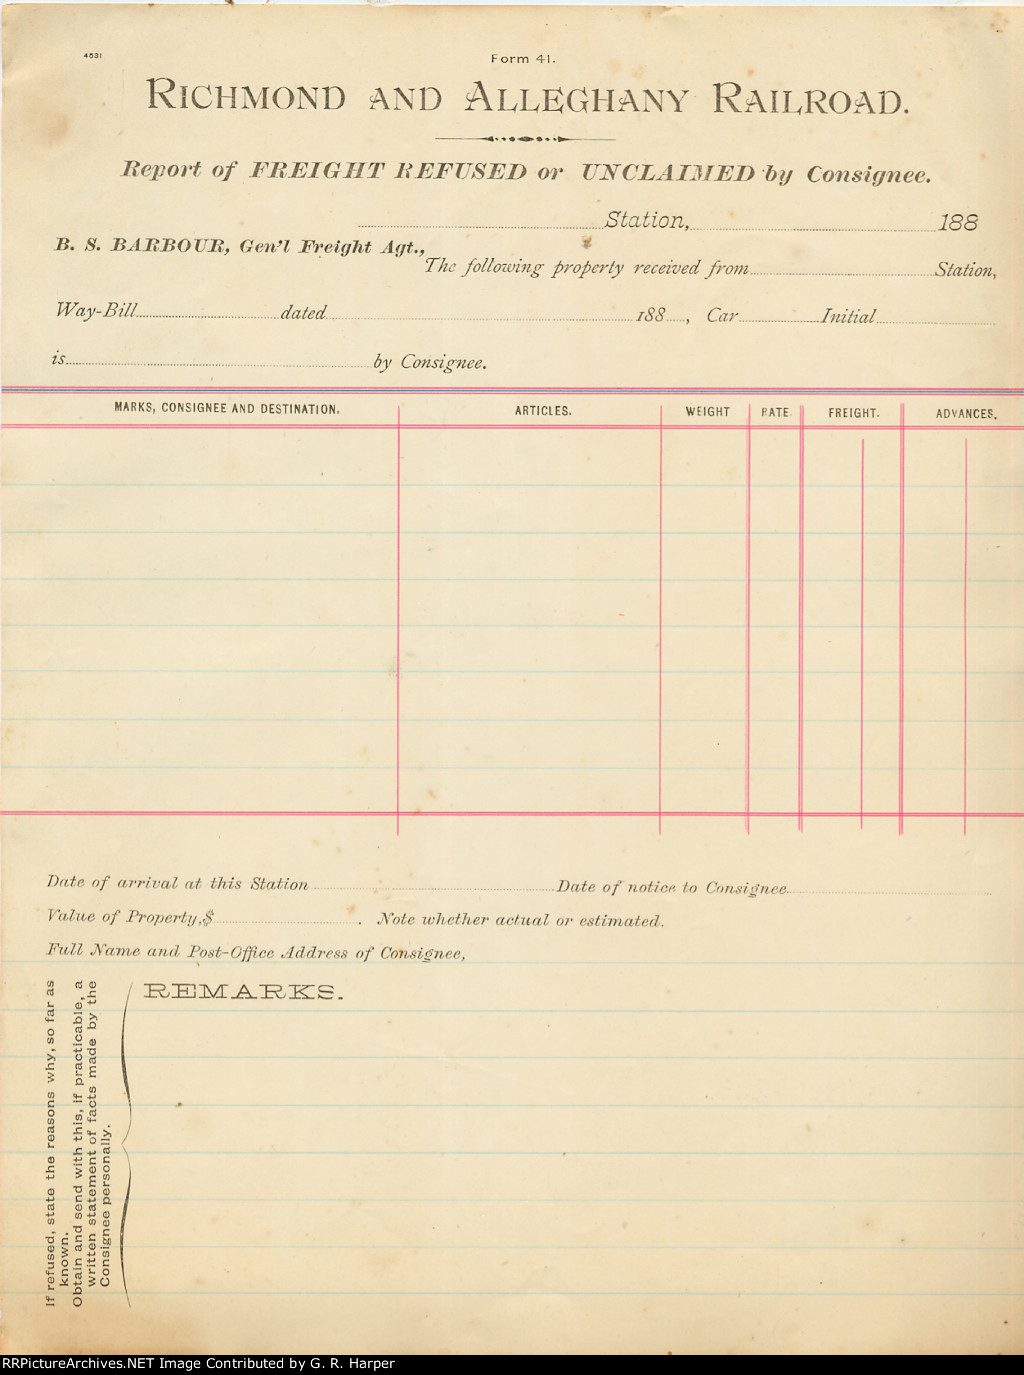 4531
Form 41.
RICHMOND AND ALLEGHANY RAILROAD.
Report of FREIGHT REFUSED or UNCLAIMED by Consignee.
Station, 188
B. S. BARBOUR, Gen'l Freight Agt.,
The following property received from Station,
Way-Bill dated 188 , Car Initial
is by Consignee.
MARKS, CONSIGNEE AND DESTINATION. ARTICLES. WEIGHT RATE FREIGHT. ADVANCES.
Date of arrival at this Station Date of notice to Consignee
Value of Property,$ . Note whether actual or estimated.
Full Name and Post-Office Address of Consignee,
REMARKS.
If refused, state the reasons why, so far as
known.
Obtain and send with this, if practicable, a
written statement of facts made by the
Consignee personally.
RRPictureArchives.NET Image Contributed by G. R. Harper